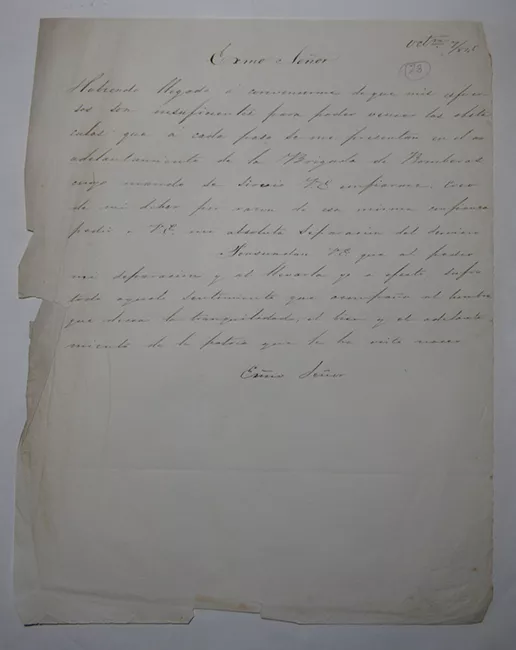 Octre 7/
23
Exmo Señor
Habiendo llegado á convencerme de que mis esfuer
zos son insuficientes para poder vencer los obstá
culos que á cada paso se me presentan en el
adelantamiento de la Brigada de Bomberos
cuyo mando se sirvió V.E. confiarme. Creo
de mi deber por razon de esa misma confianza
pedir á V.E. mi absoluta separacion del
V.E. que al pedir
mi separacion y al llevarla yo á efecto sufro
todo aquel sentimiento que acompaña al hombre
que desea la tranquilidad, el bien y el adelanta-
miento de la patria que le ha visto nacer
Exmo Señor